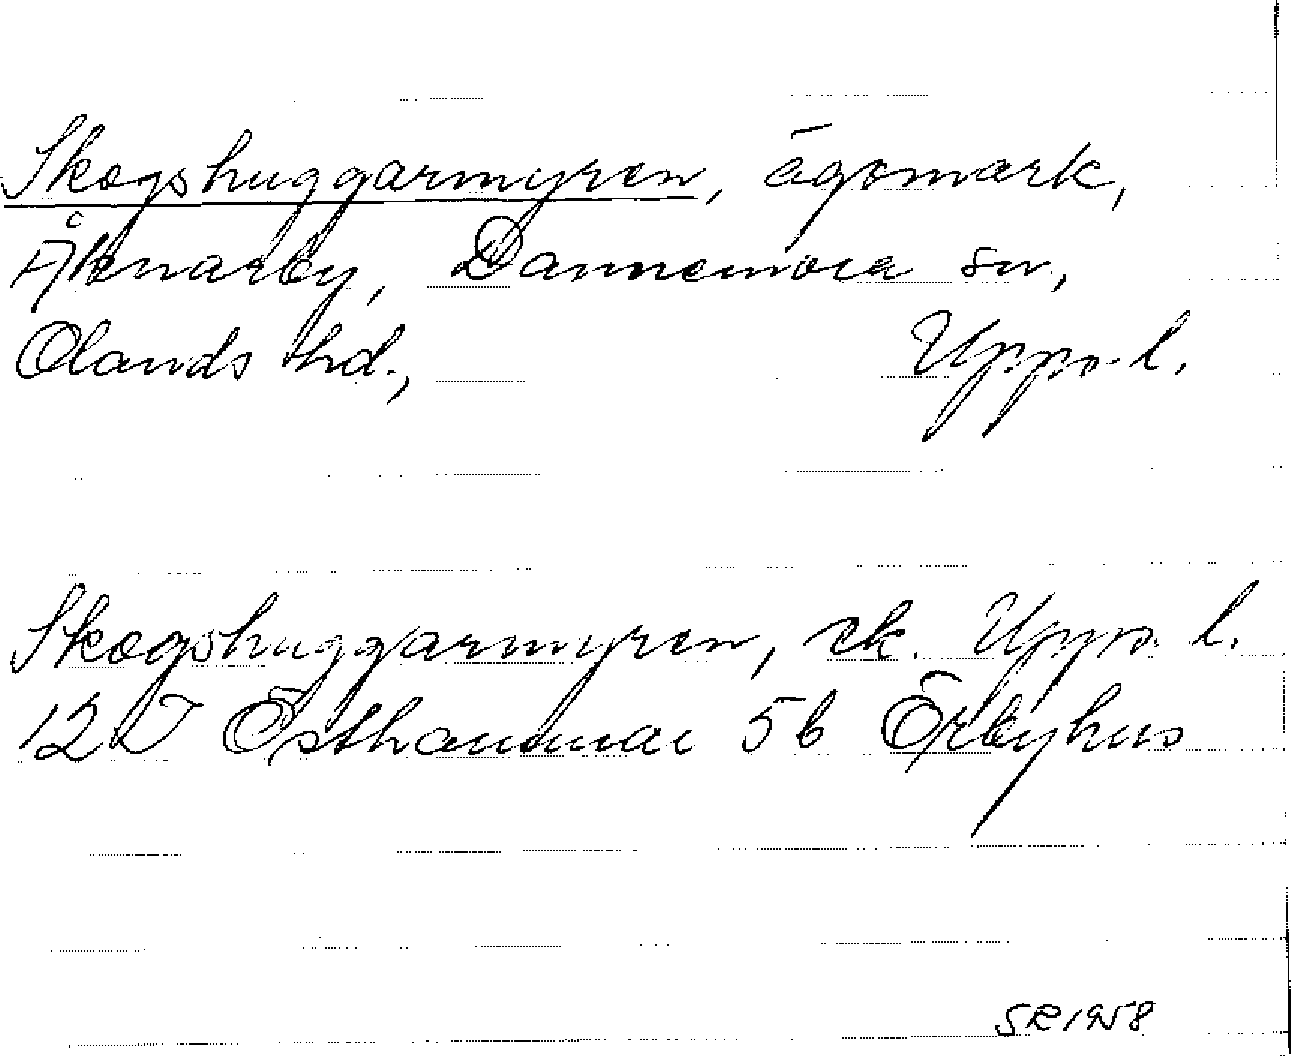 Skogshuggarmyren, ägomark,
Åknarby, Dannemora sn,
Olands hd., Upps. l.
Skogshuggarmyren, ek. Upps. l.
12 I Östhammar 5b Örbyhus
SR 1958